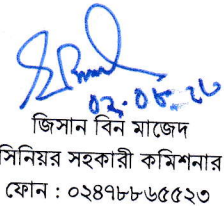 ০২.০৮.২৮
জিসান বিন মাজেদ
সিনিয়র সহকারী কমিশনার
ফোন : ০২৪৭৮৮৬৫৫২৩